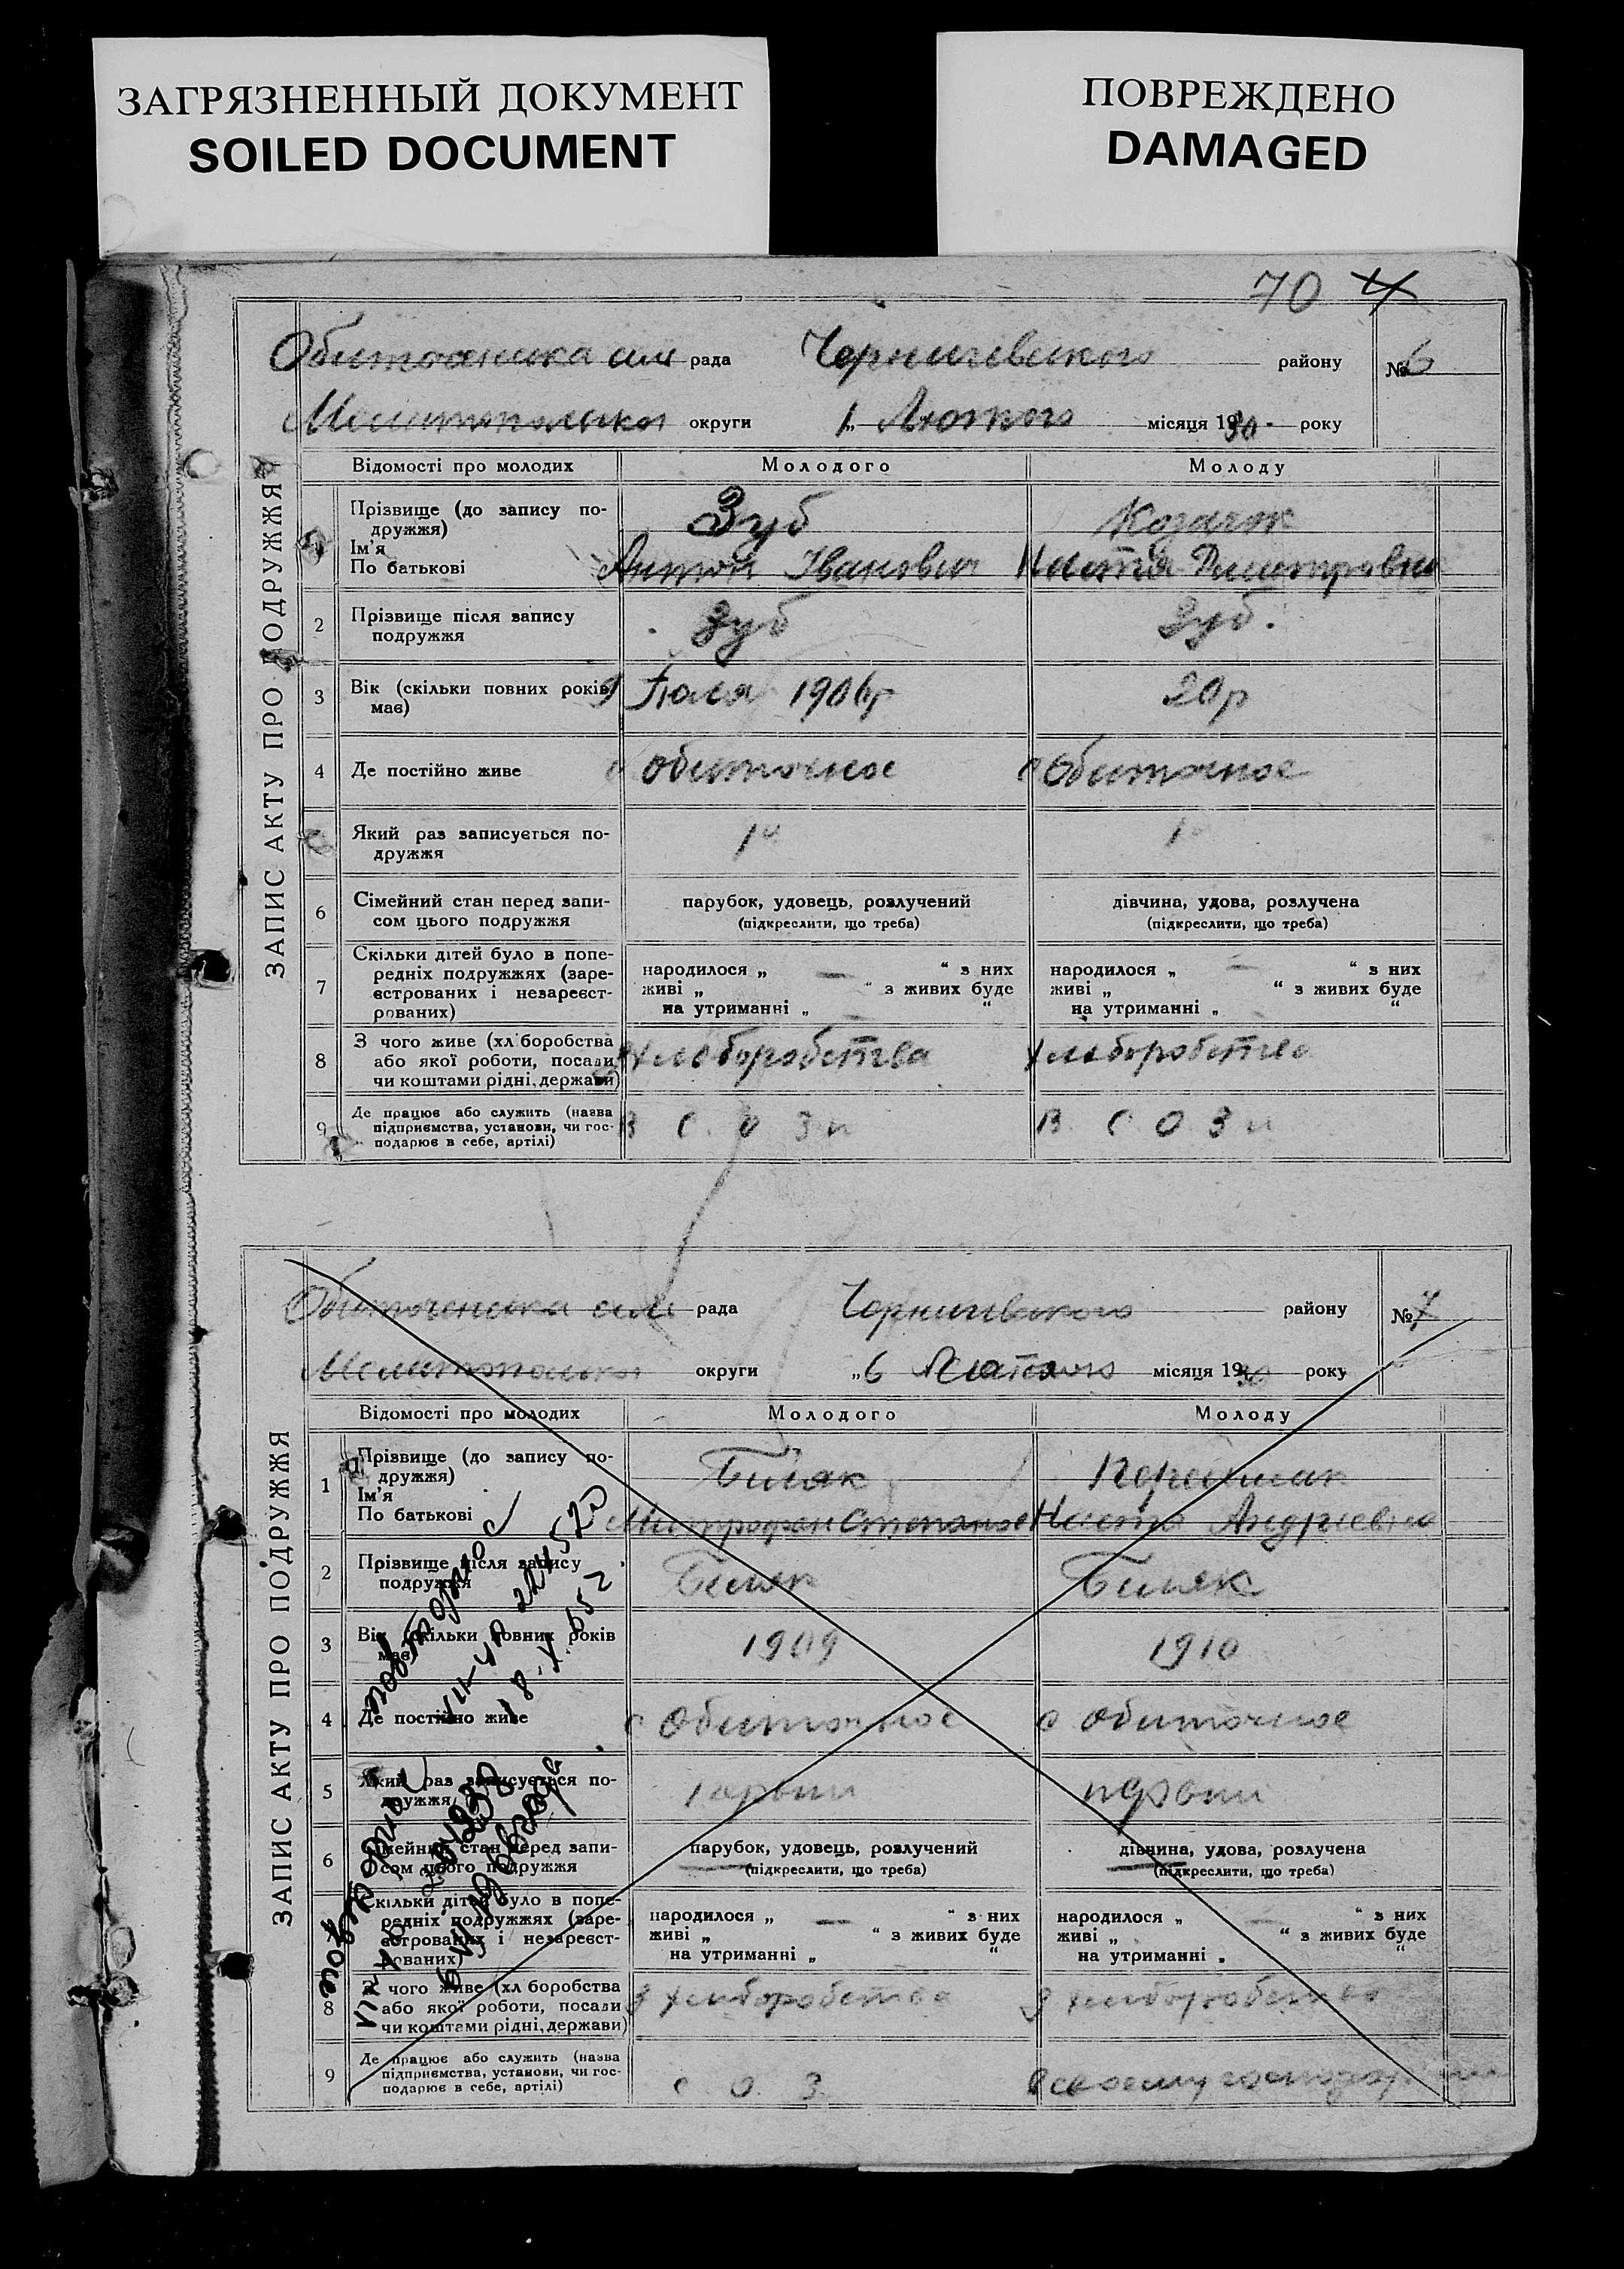 ЗАГРЯЗНЕННЫЙ ДОКУМЕНТ
SOILED DOCUMENT
ПОВРЕЖДЕНО
DAMAGED
70
рада Чернигівського району № 6
округи 1 Лютого місяця 1930 року
ЗАПИС АКТУ ПРО ПОДРУЖЖЯ
Відомості про молодих Молодого Молоду
Прізвище (до запису по-
дружжя)
Зуб Козачок
Ім'я
По батькові
Антон Іванович Настя
2 Прізвище після запису
подружжя
Зуб Зуб.
3 Вік (скільки повних років
має)
9 Юля 1906р 20р
4 Де постійно живе с Обиточное с Обиточное
Який раз записується по-
дружжя
1й 1
6 Сімейний стан перед запи-
сом цього подружжя
парубок, удовець, розлучений
(підкреслити, що треба)
дівчина, удова, розлучена
(підкреслити, що треба)
7 Скільки дітей було в попе-
редніх подружжях (заре-
єстрованих і незареєст-
рованих)
народилося „ — “ з них
живі „ “ з живих буде
на утриманні „ “
народилося „ — “ з них
живі „ “ з живих буде
на утриманні „ “
8 З чого живе (хліборобства
або якої роботи, посади
чи коштами рідні, держави)
хліборобства хліборобства
9 Де працює або служить (назва
підприємства, установи, чи гос-
подарює в себе, артілі)
В С О З и В С О З и
рада Чернигівського району № 7
округи „6 Лютого місяця 1930 року
ЗАПИС АКТУ ПРО ПОДРУЖЖЯ
Відомості про молодих Молодого Молоду
1 Прізвище (до запису по-
дружжя)
Біляк
Ім'я
По батькові
Митрофан Степанов Настя Андрієвна
2 Прізвище після запису
подружжя
Біляк Біляк
3 Вік (скільки повних років
має)
1909 1910
4 Де постійно живе с Обиточное с Обиточное
5 Який раз записується по-
дружжя
первий первий
6 Сімейний стан перед запи-
сом цього подружжя
парубок, удовець, розлучений
(підкреслити, що треба)
дівчина, удова, розлучена
(підкреслити, що треба)
Скільки дітей було в попе-
редніх подружжях (заре-
єстрованих і незареєст-
рованих)
народилося „ — “ з них
живі „ “ з живих буде
на утриманні „ “
народилося „ — “ з них
живі „ “ з живих буде
на утриманні „ “
8 З чого живе (хліборобства
або якої роботи, посади
чи коштами рідні, держави)
з хліборобства з хліборобства
9 Де працює або служить (назва
підприємства, установи, чи гос-
подарює в себе, артілі)
С О З
повторно
повторно